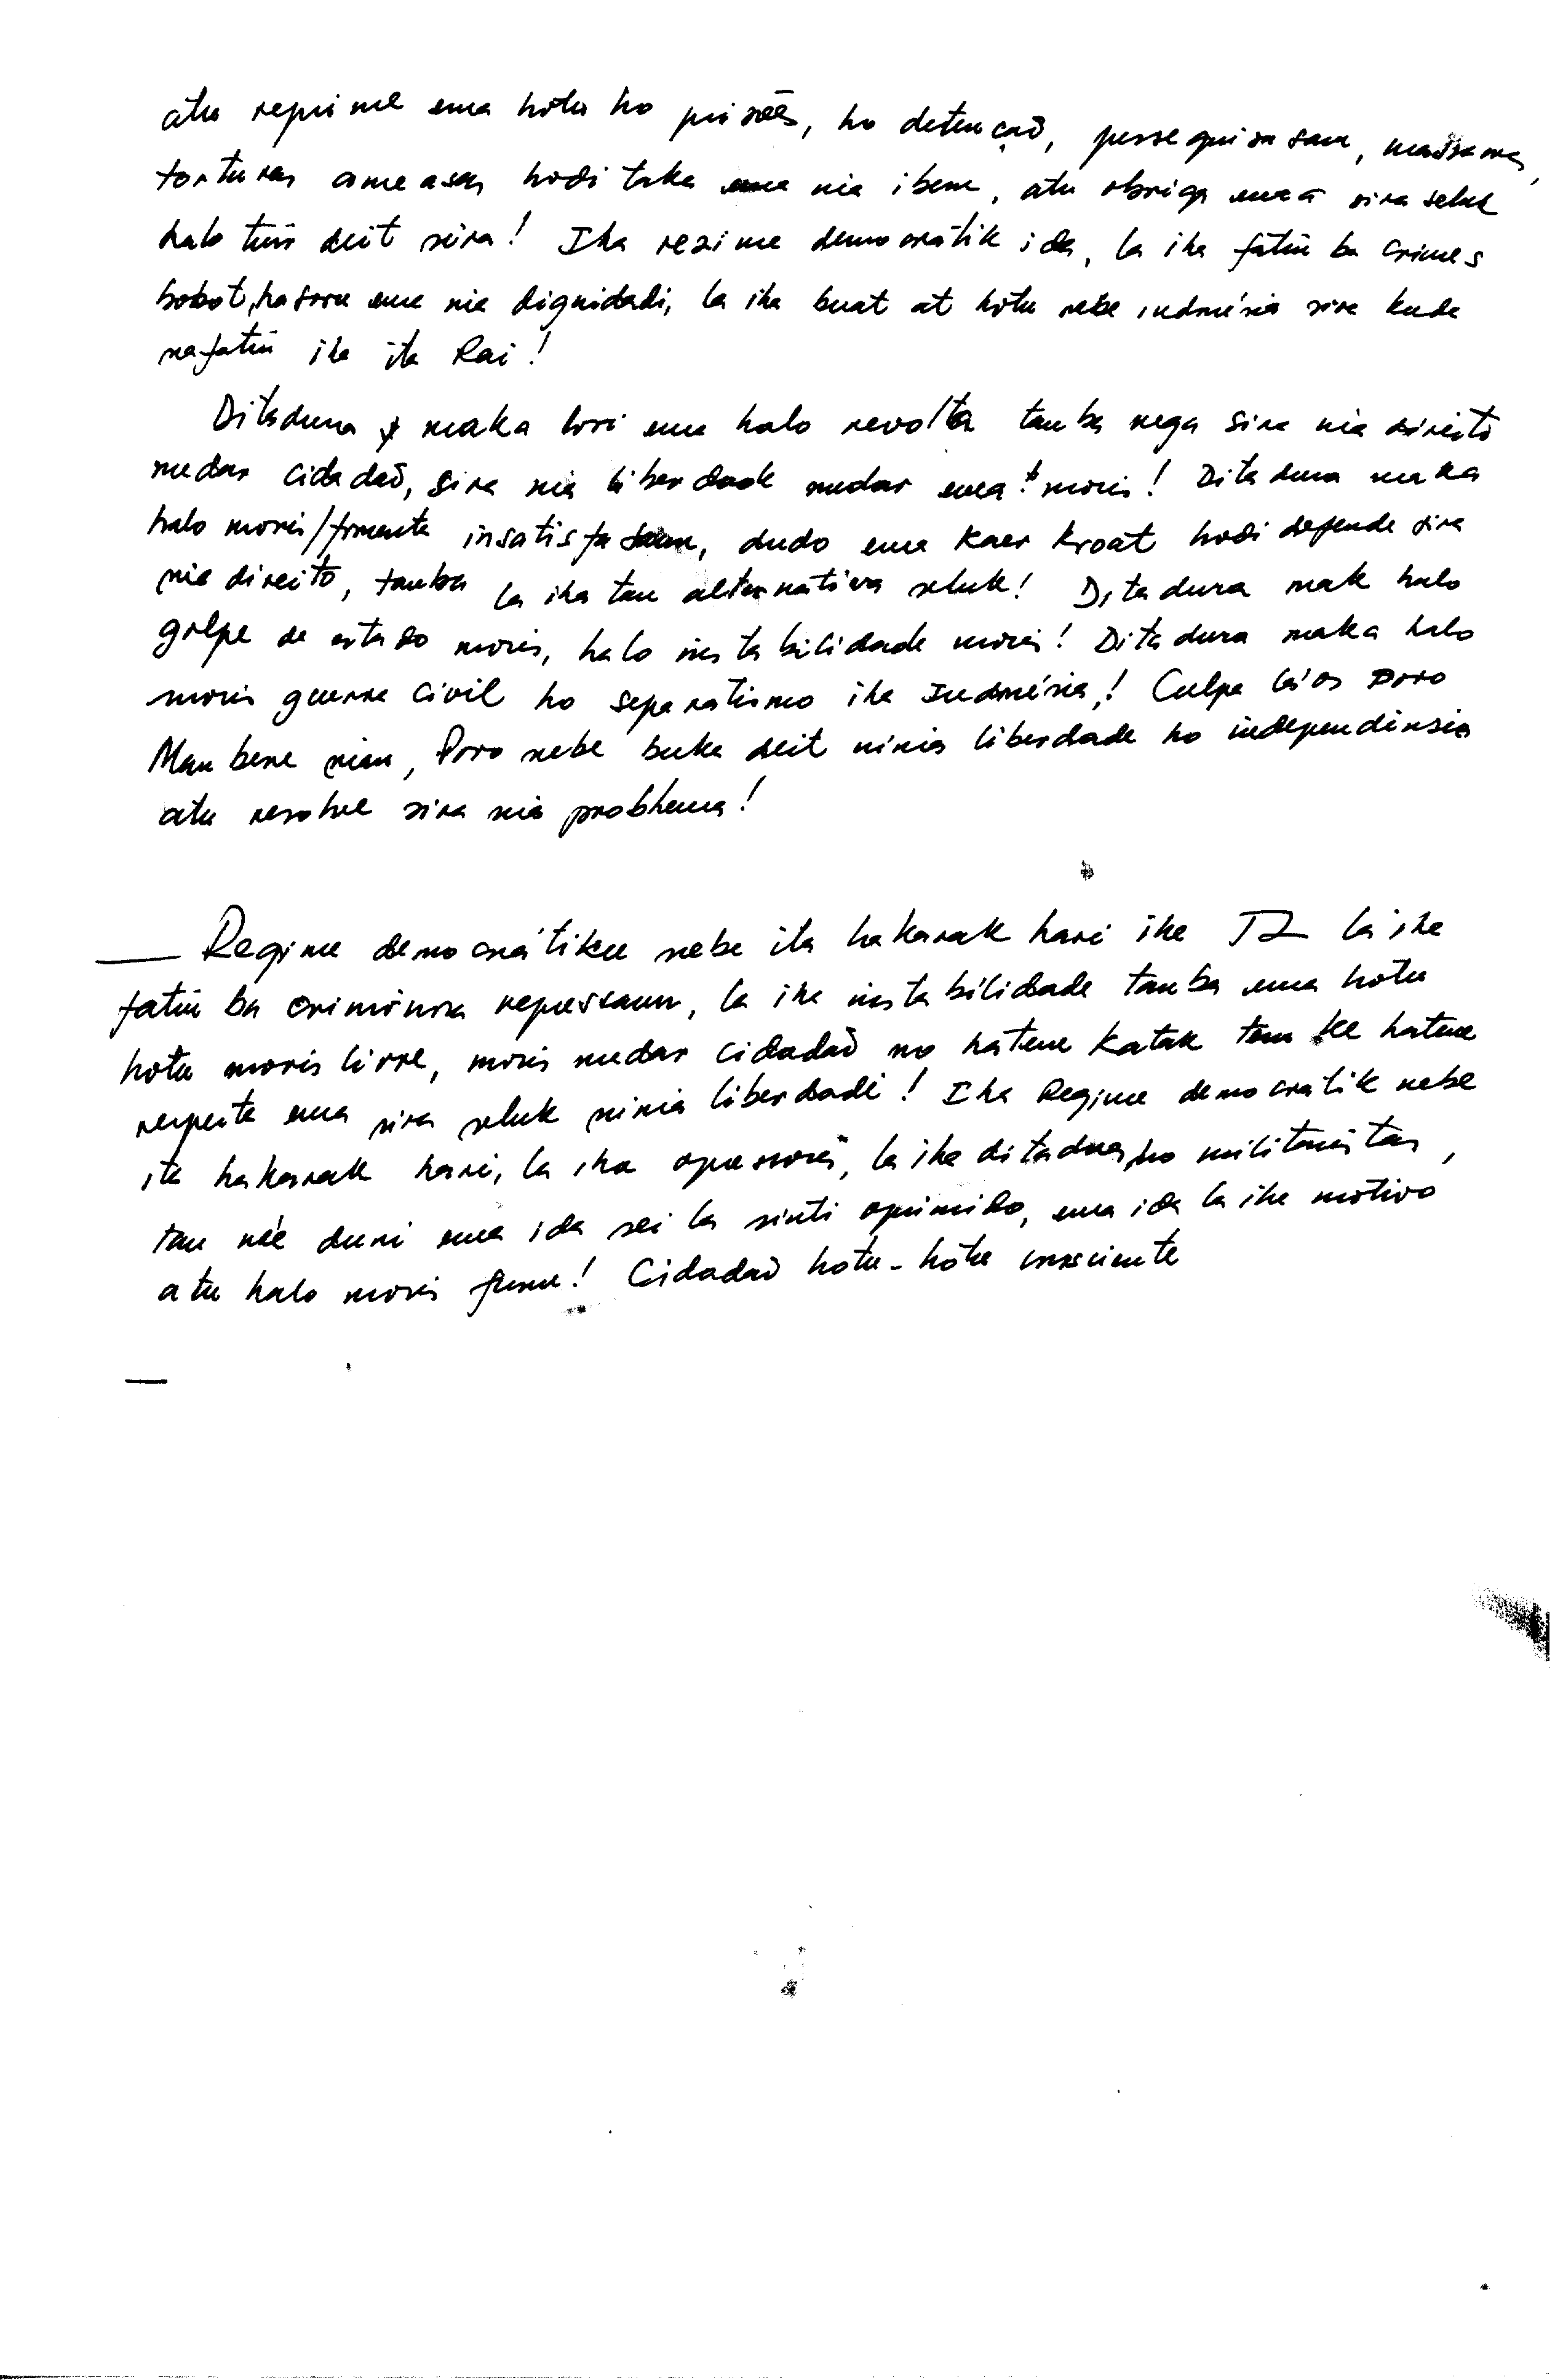 atu reprime ema hotu ho prisões, ho detenção, persseguisasaun, massacres,
torturas ameasas hodi taka ema nia ibun, atu obriga ema sira seluk
halo tuir deit seira! Iha rezime demokrátik ida, la iha fatin ba crimes
bobot, hasoru ema nia dignidadi, la iha buat at hotu nebe indonésia sira kuda
nafatin iha ita Rai!
Ditadura maka lori ema halo revolta tanba nega sira nia direito
nudar cidadão, sira nia liberdade nudar ema moris! Ditadura maka
halo moris/fomenta insatisfasaun, dudo ema kaer kroat hodi defende sira
nia direito, tanba la iha tan alternativa seluk! Ditadura mak halo
golpe de estado moris, halo instabilidade moris! Ditadura maka halo
moris guerra civil ho separatismo iha Indonésia! Culpa lá'os Povo
Maubere nian, Povo nebe buka deit ninia liberdade ho independénsia
atu resolve sira nia problema!
Regime democrátiku nebe ita hakarak hari iha TL la iha
fatin ba criminosa repressaun, la iha instabilidade tanba ema hotu
hotu moris livre, moris nudar cidadão no hatene katak tem ke hatene
respeita ema sira seluk ninia liberdadi! Iha Regime democratik nebe
ita hakarak hari, la iha opressores, la iha ditaduras ho militaristas,
tan né'e duni ema ida sei la sinti oprimido, ema ida la iha motivo
atu halo moris funu! Cidadão hotu-hotu consciente